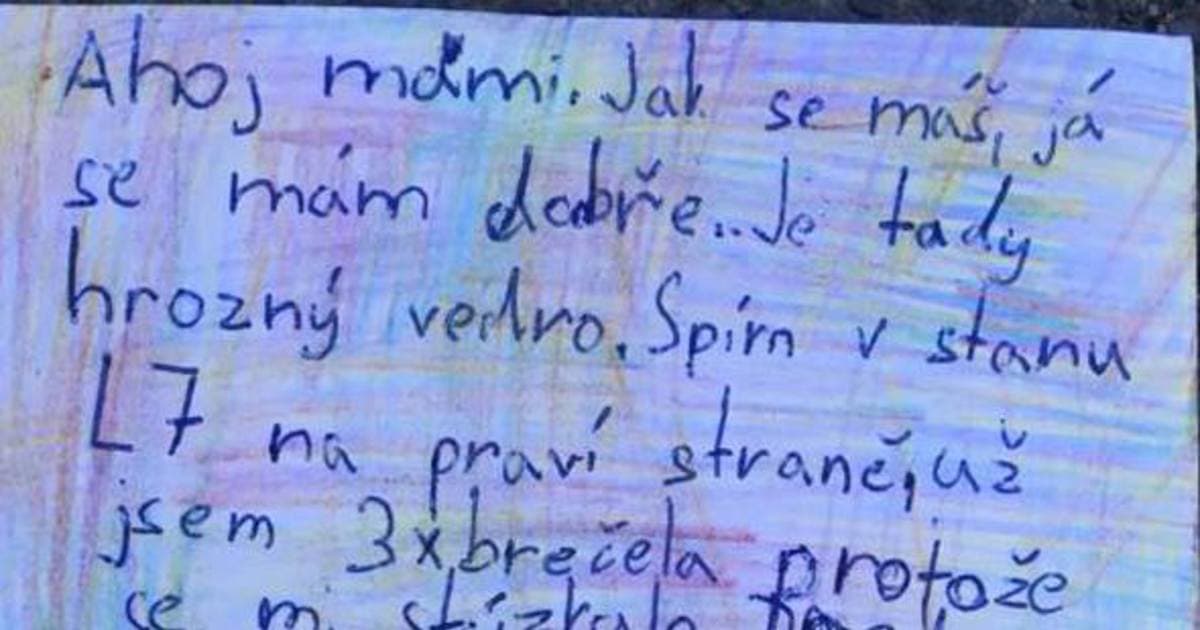 Ahoj mámi. Jak se máš, já
se mám dobře.. Je tady
hrozný vedro. Spím v stanu
L7 na praví straně, už
jsem 3x brečela protože
se mi